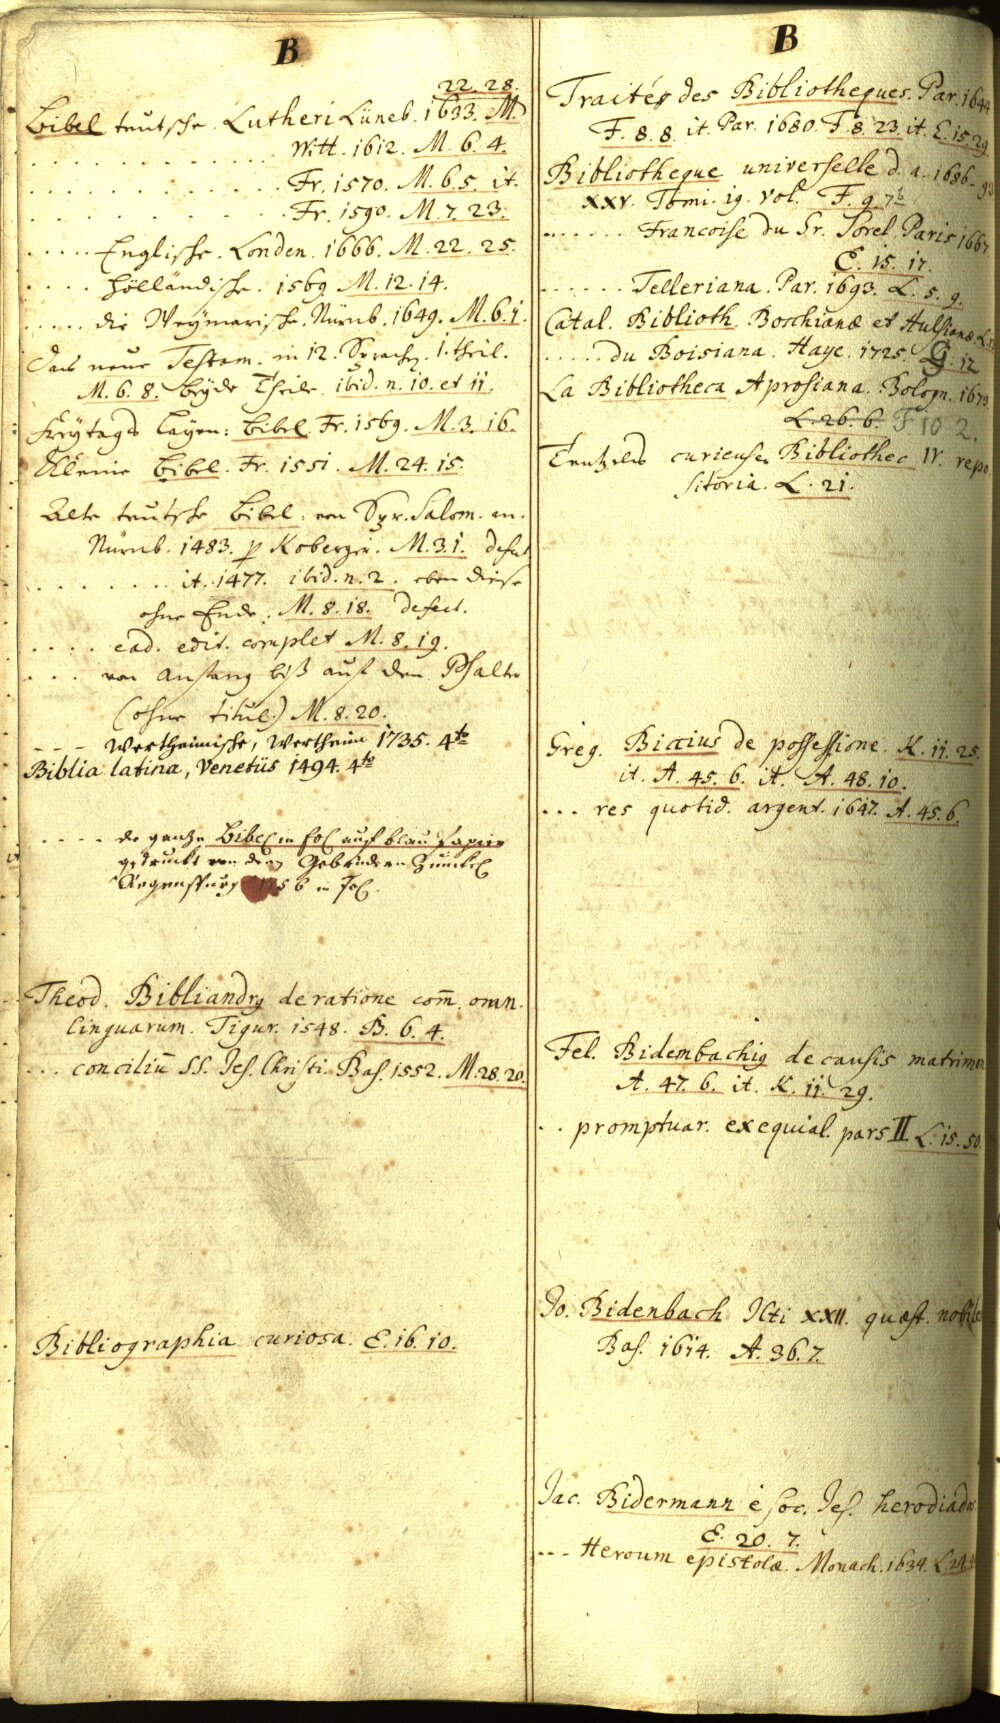 B
22. 28.
Bibel teutsche. Lutheri Lüneb. 1633. M.
Witt. 1612. M. 6. 4.
Fr. 1570. M. 6. 5. it.
Fr. 1590. M. 7. 23.
Englische. Londen. 1666. M. 22. 25.
Holländische. 1569 M. 12. 14.
die Weymarische. Nürnb. 1649. M. 6. 1.
das neue Testam. in 12. Sprachen. 1. theil.
M. 6. 8. beyde Theile. ibid. n. 10. et 11.
Freytags Layen: Bibel. Fr. 1569. M. 3. 16.
Kleine Bibel. Fr. 1551. M. 24. 15.
Alte teutsche Bibel. von Spr. Salom. an.
Nürnb. 1483. p Koberger. M. 3. 1. defect
it. 1477. ibid. n. 2. eben diese
ohne Ende. M. 8. 18. defect.
ead. edit. complet M. 8. 19.
von Anfang biß auf den Psalter
(ohne titul.) M. 8. 20.
Wertheimische, Wertheim 1735. 4to
Biblia latina, Venetiis 1494. 4to
die gantze Bibel in fol auf blau Papier
gedruckt von den Gebrüdern Zunckel
Regenspurg 1756 in Fol.
Theod. Bibliandrg de ratione com̄. omn.
linguarum. Tigur. 1548. B. 6. 4.
conciliū SS. Jes. Christi. Bas. 1552. M. 28. 20.
Bibliographia curiosa. E. 16. 10.
B
Traités des Bibliotheques. Par. 1644
F. 8. 8. it. Par. 1680. F. 8. 23. it. E. 15. 29
Bibliotheque universelle d. a. 1686-93
XXV. Tomi. 19. vol. F. 9. 7b
Francoise du Sr. Sorel. Paris 1667.
E. 15. 17.
Telleriana. Par. 1693. L. 5. 9.
Catal. Biblioth. Boschianæ et Hulsianæ
du Boisiana. Haye. 1725. G. 12
La Bibliotheca Aprosiana. Bologn. 1673
L. 26. 6. F 10 2.
Tentzels curieuse Bibliothec IV. repo
sitoria. L. 21.
Greg. Biccius de possessione. K. 11. 25.
it. A. 45. 6. it. A. 48. 10.
res quotid. argent. 1647. A. 45. 6.
Fel. Bidembachig de causis matrimon
A. 47. 6. it. K. 11. 29.
promptuar. exequial. pars II L. 15. 50
Jo. Bidenbach Icti XXII. quæst. nobiles
Bas. 1614. A. 36. 7.
Jac. Bidermann è soc. Jes. herodiados
E. 20. 7.
Heroum epistolæ. Monach. 1634. L. 24.